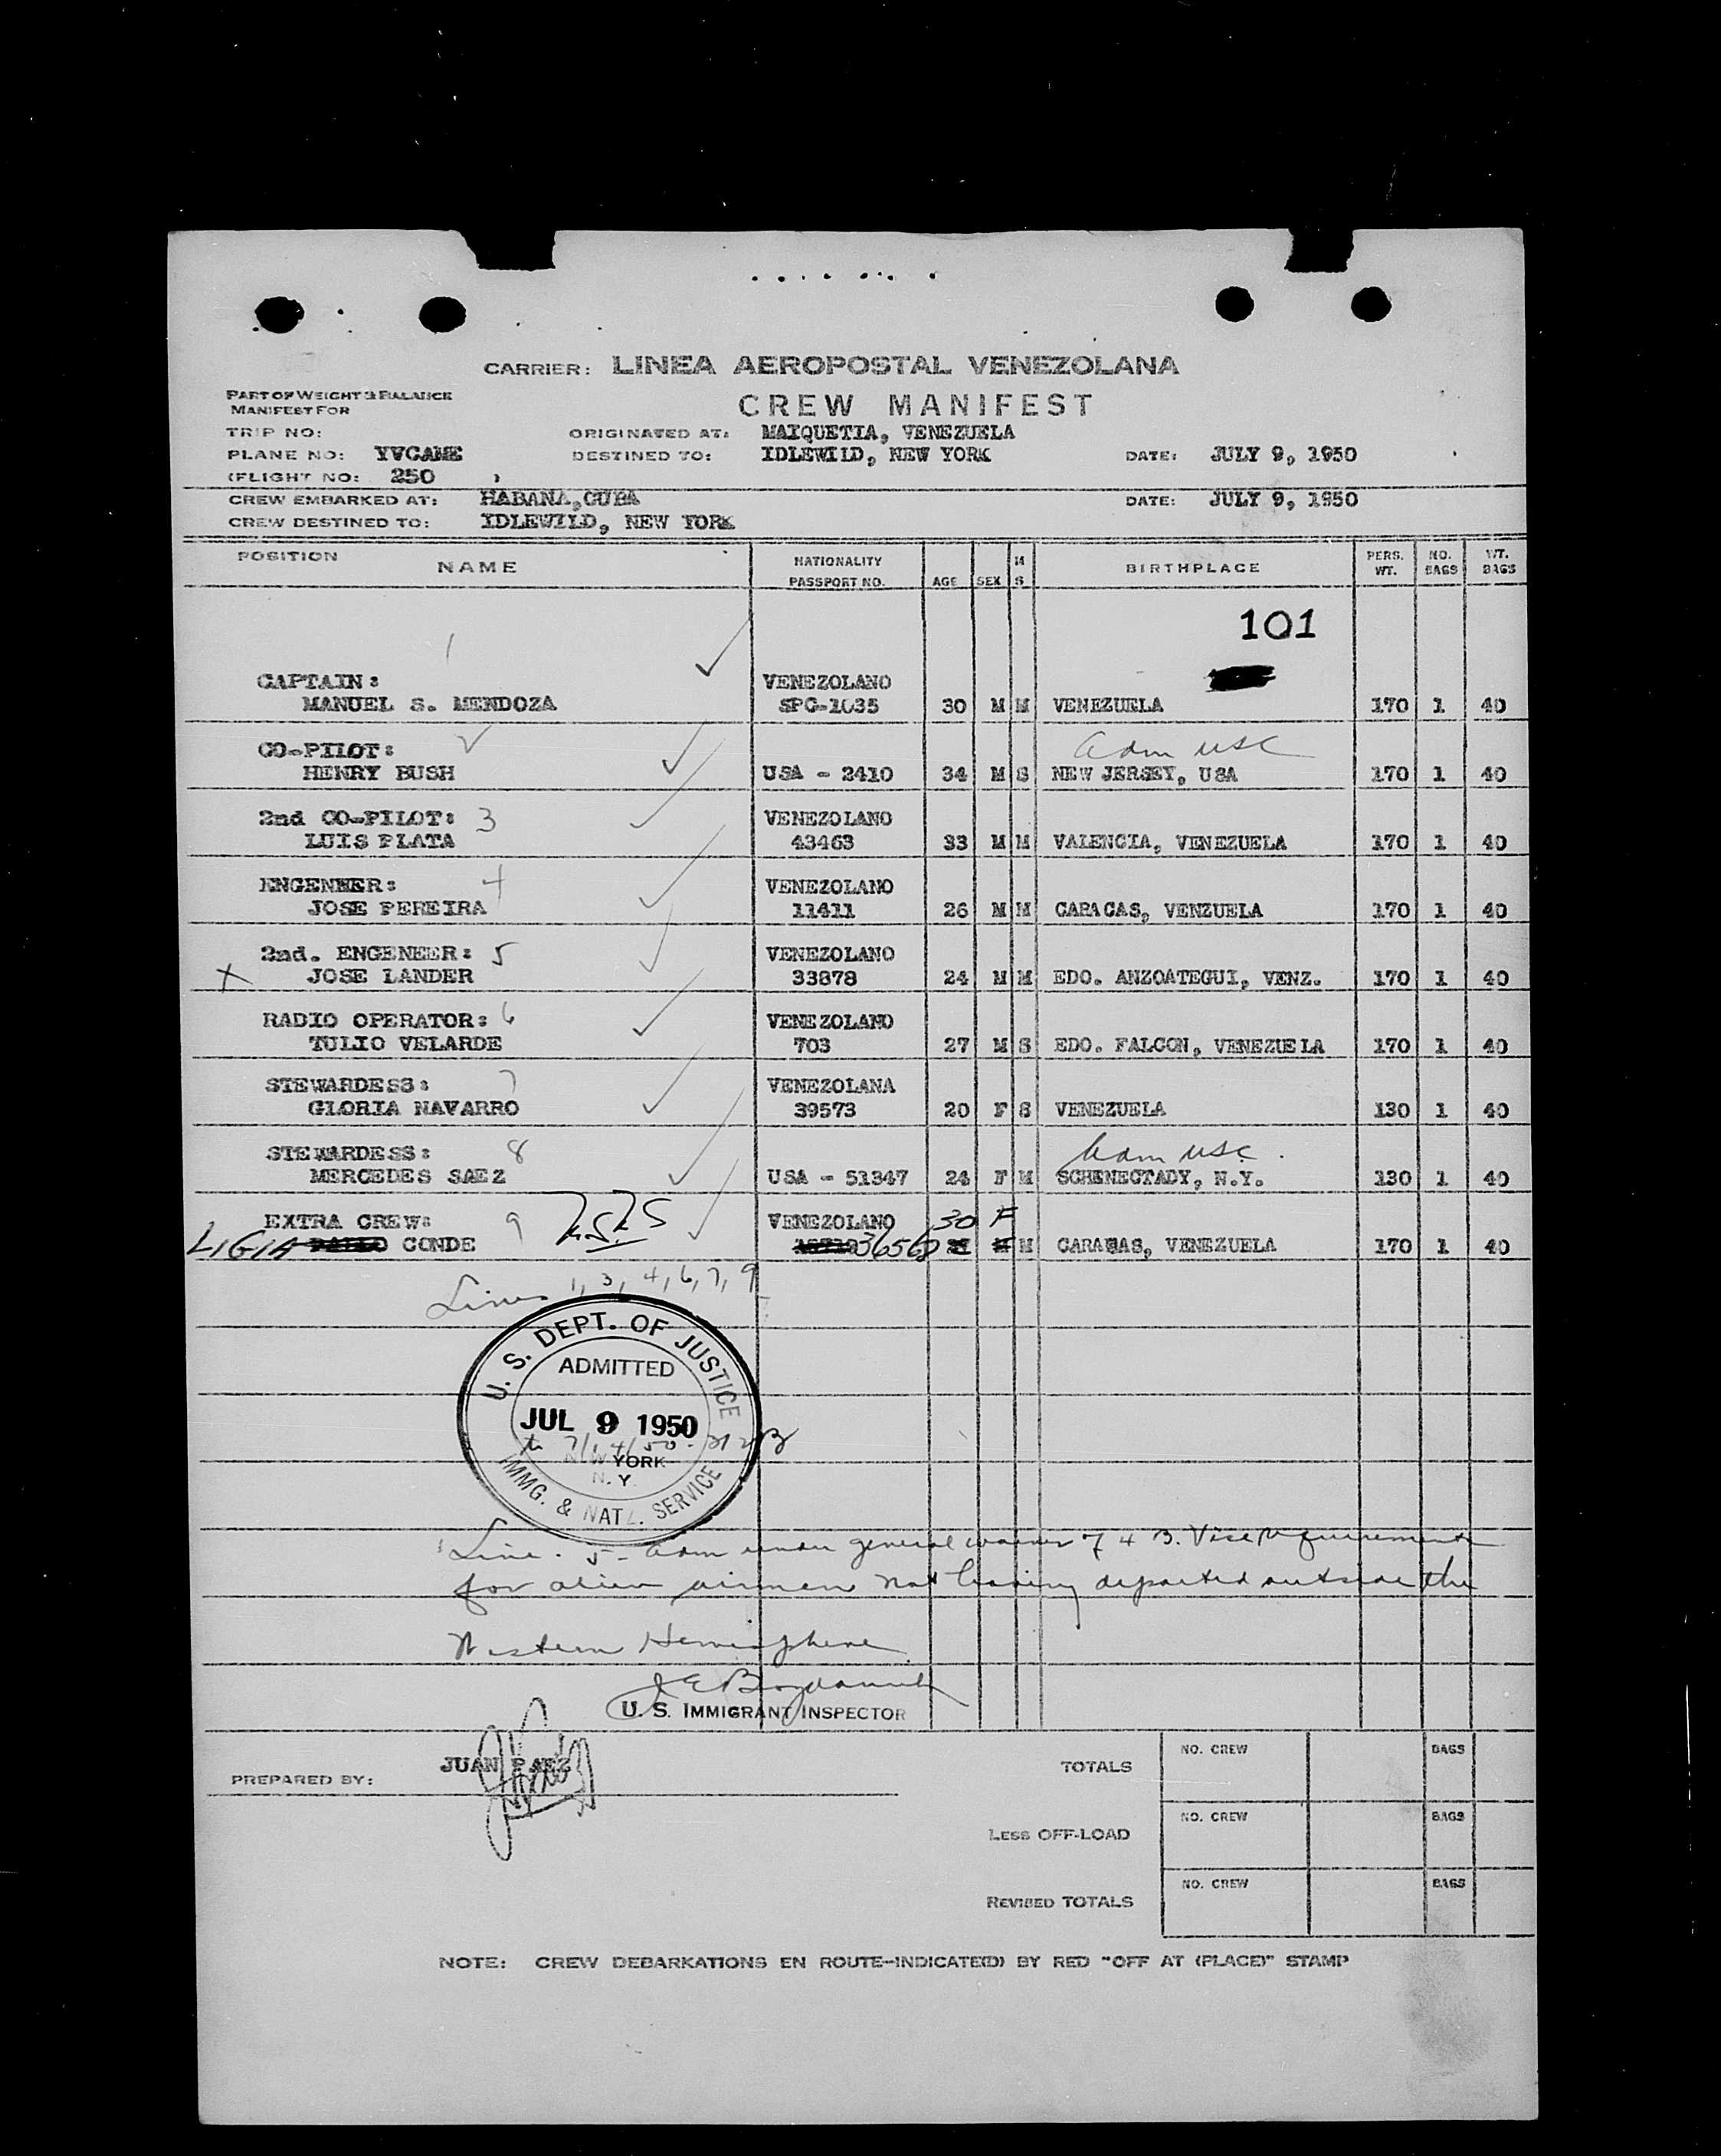 CARRIER: LINEA AEROPOSTAL VENEZOLANA
PART OF WEIGHT & BALANCE
MANIFEST FOR
CREW MANIFEST
TRIP NO: ORIGINATED AT: MAIQUETIA, VENEZUELA
PLANE NO: YVCAME DESTINED TO: IDLEWILD, NEW YORK DATE: JULY 9, 1950
(FLIGHT NO: 250 )
CREW EMBARKED AT: HABANA, CUBA DATE: JULY 9, 1950
CREW DESTINED TO: IDLEWILD, NEW YORK
POSITION NAME NATIONALITY PASSPORT NO. AGE SEX M S BIRTHPLACE PERS. WT. NO. BAGS WT. BAGS
101
1
CAPTAIN: VENEZOLANO
MANUEL S. MENDOZA SPC-1035 30 M M VENEZUELA 170 1 40
CO-PILOT: 2 Adm USC
HENRY BUSH USA - 2410 34 M S NEW JERSEY, USA 170 1 40
2nd CO-PILOT: 3 VENEZOLANO
LUIS PLATA 43463 33 M M VALENCIA, VENEZUELA 170 1 40
ENGENEER: 4 VENEZOLANO
JOSE PEREIRA 11411 26 M M CARACAS, VENZUELA 170 1 40
2nd. ENGENEER: 5 VENEZOLANO
X JOSE LANDER 33878 24 M M EDO. ANZOATEGUI, VENZ. 170 1 40
RADIO OPERATOR: 6 VENEZOLANO
TULIO VELARDE 703 27 M S EDO. FALCON, VENEZUELA 170 1 40
STEWARDESS: 7 VENEZOLANA
GLORIA NAVARRO 39573 20 F S VENEZUELA 130 1 40
STEWARDESS: 8 Adm USC.
MERCEDES SAEZ USA - 51347 24 F M SCHENECTADY, N.Y. 130 1 40
EXTRA CREW: 9 VENEZOLANO 30 F
LIGIA CONDE 36560 M CARACAS, VENEZUELA 170 1 40
Lines 1, 3, 4, 6, 7, 9
U. S. DEPT. OF JUSTICE
ADMITTED
JUL 9 1950
to 7/14/50
NEW YORK
N. Y.
IMMG. & NAT'L. SERVICE
Line. 5 - Adm under general waiver of 4 B. Visa requirements
for alien airmen not having departed outside the
Western Hemisphere
U. S. IMMIGRANT INSPECTOR
PREPARED BY: JUAN PAEZ
TOTALS NO. CREW BAGS
LESS OFF-LOAD NO. CREW BAGS
REVISED TOTALS NO. CREW BAGS
NOTE: CREW DEBARKATIONS EN ROUTE-INDICATE(D) BY RED "OFF AT (PLACE)" STAMP